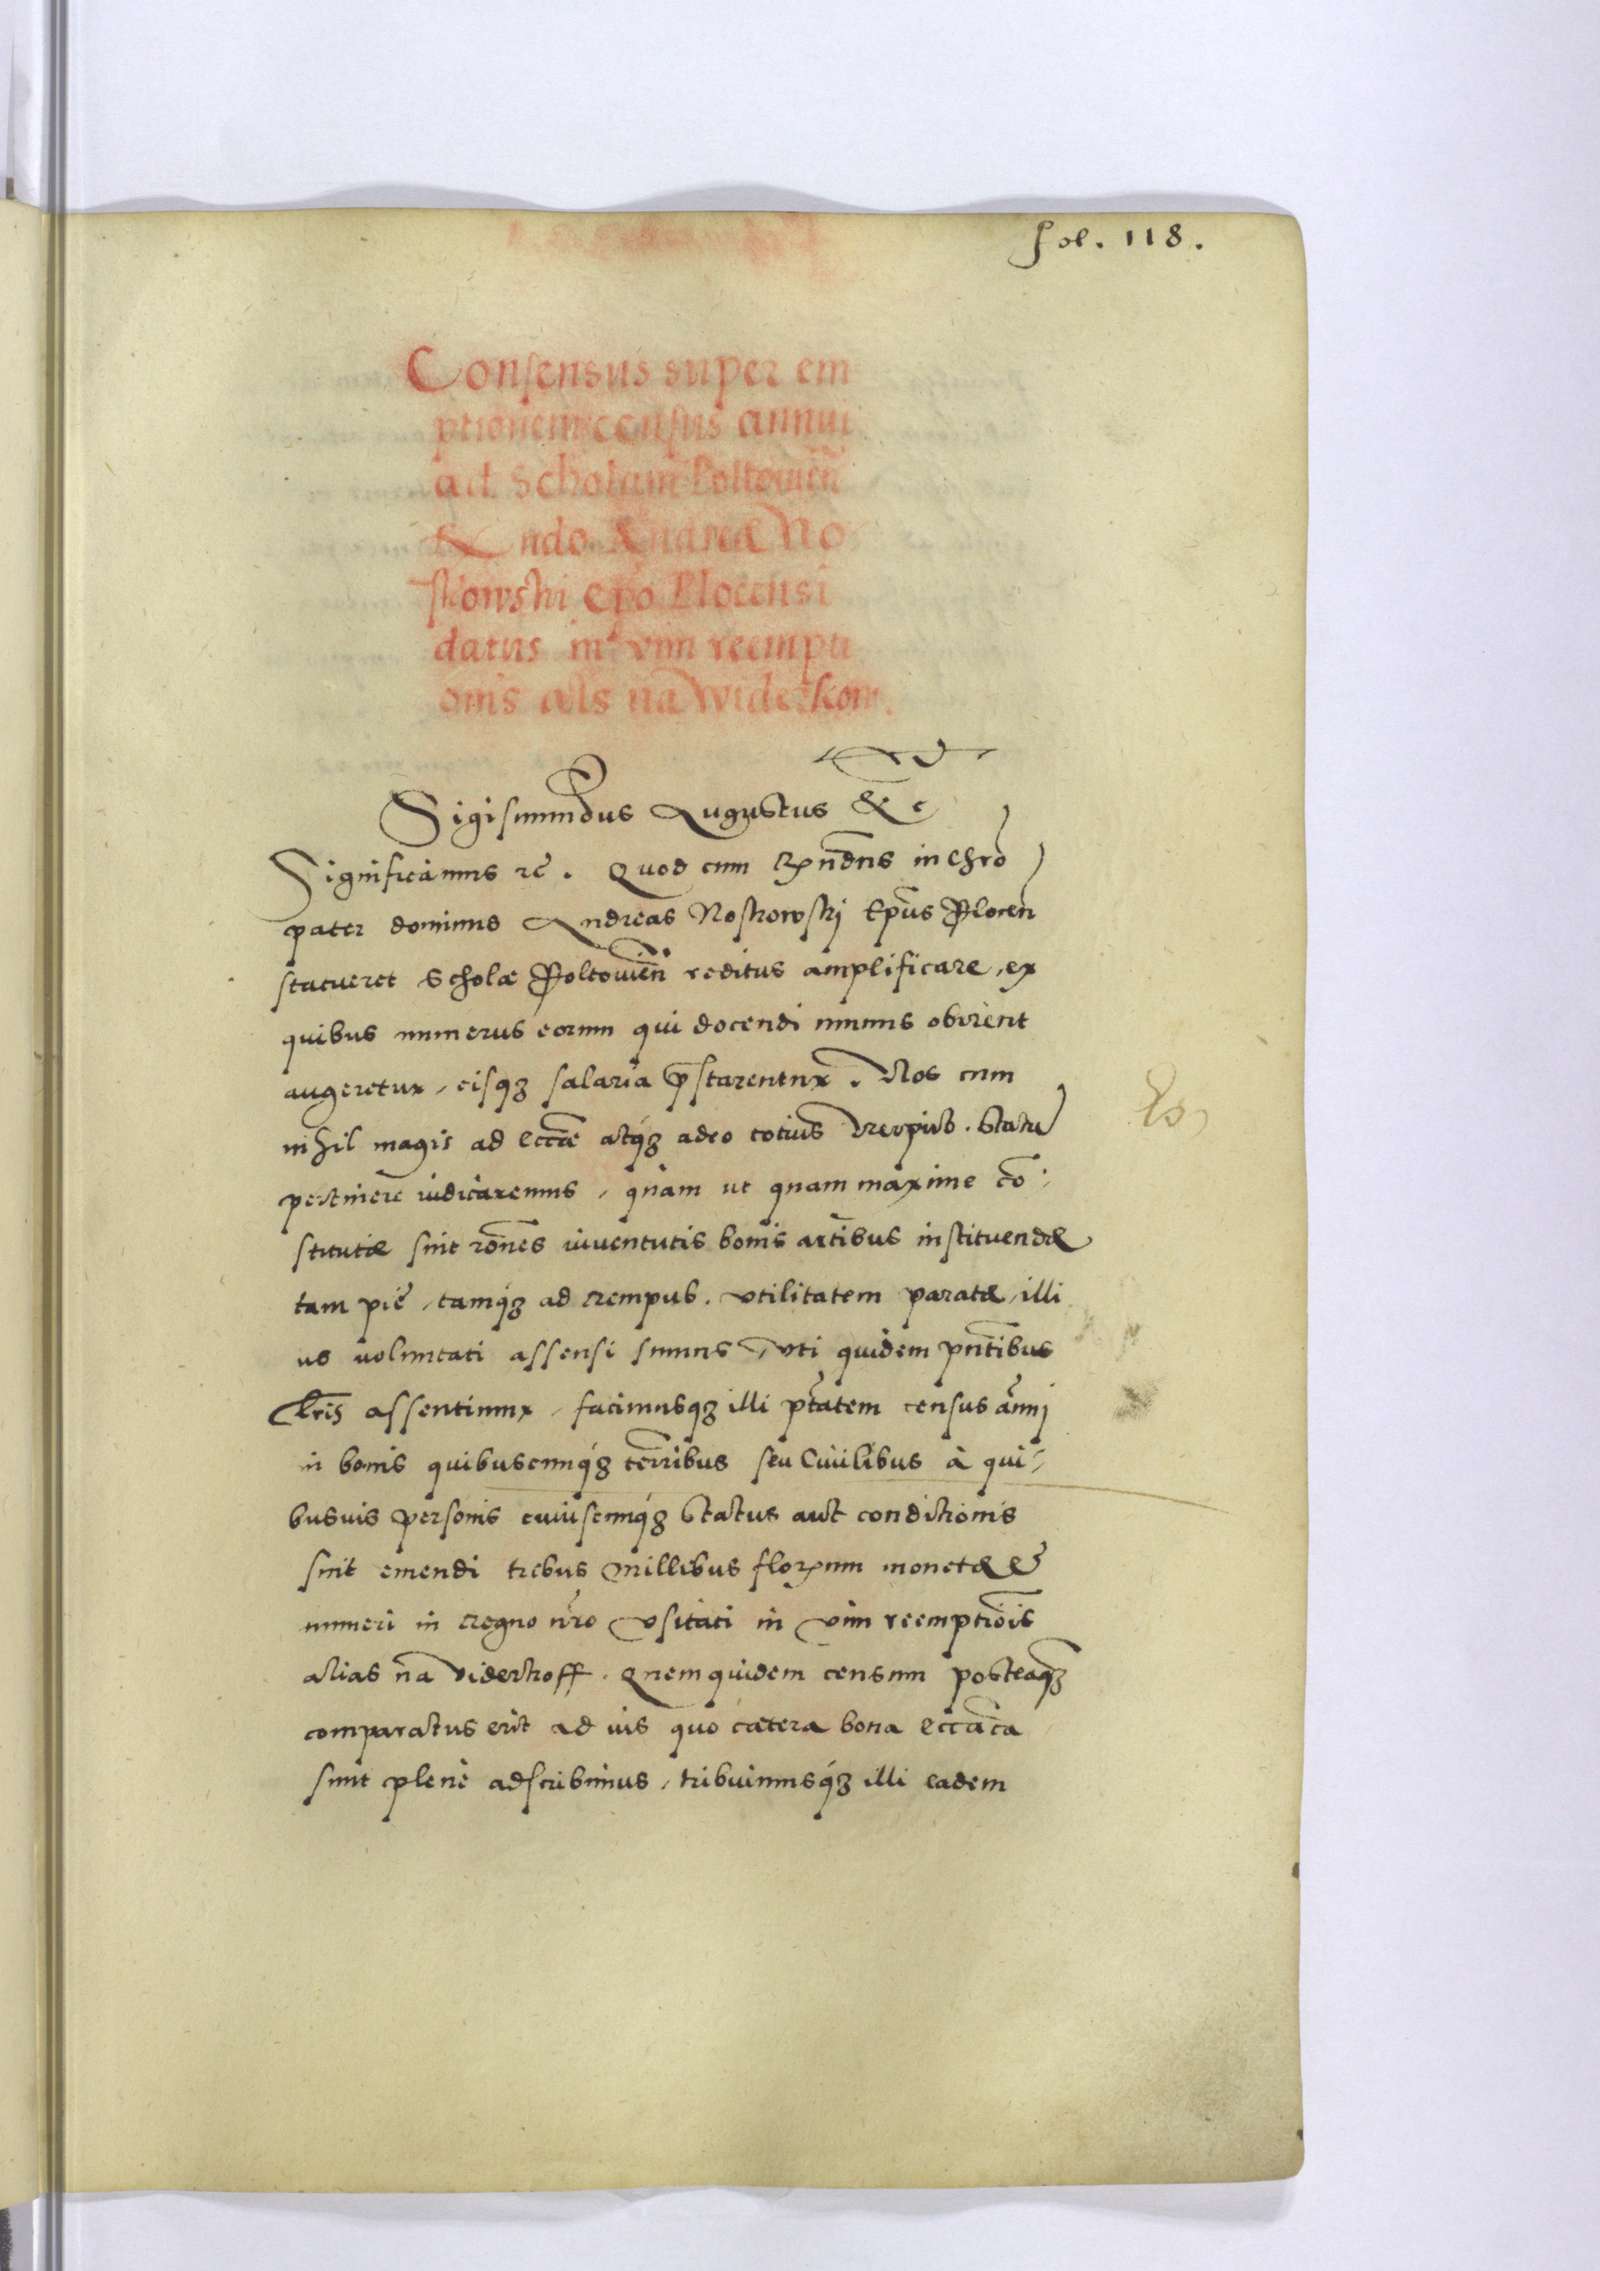 fol. 118.
Consensus super em
ptionem census annui
ad Scholam Poltowień
Rndo Andreæ No
skowski epo Plocensi
datus in vim reempti
onis als na Widerkow.
Sigismundus Augustus &c
Significamus rc̄. Quod cum Rndus in Chr̄o
pater dominus Andreas Noskowski Ep̄us Plocen̄
statueret Scholæ Poltouien̄ reditus amplificare, ex
quibus numerus eorum qui docendi munus obirent
augeretur, eisq3 salaria p̄starentur. Nos cum
nihil magis ad eccaē atq3 adeo totius Reipub. statu
pertinere iudicaremus, quàm ut quam maxime cō-
stitutæ sint rōnes iuuentutis bonis artibus instituendæ
tam piè, tamq3 ad rempub. vtilitatem paratæ, illi
us voluntati assensi sumus, vti quidem pn̄tibus
lr̄is assentimur, facimusq3 illi pt̄atem census anni
in bonis quibuscunq3 terr̄ibus seu Ciuilibus à qui-
busuis personis cuiuscunq3 status aut conditionis
sint emendi trebus millibus florenum monetæ &
numeri in regno nr̄o vsitati in vim reemptiōis
alias na viderkoff. Quem quidem censum posteaq3
comparatus erit ad ius quo cætera bona eccāca
sunt plenè adscribimus, tribuimusq3 illi eadem